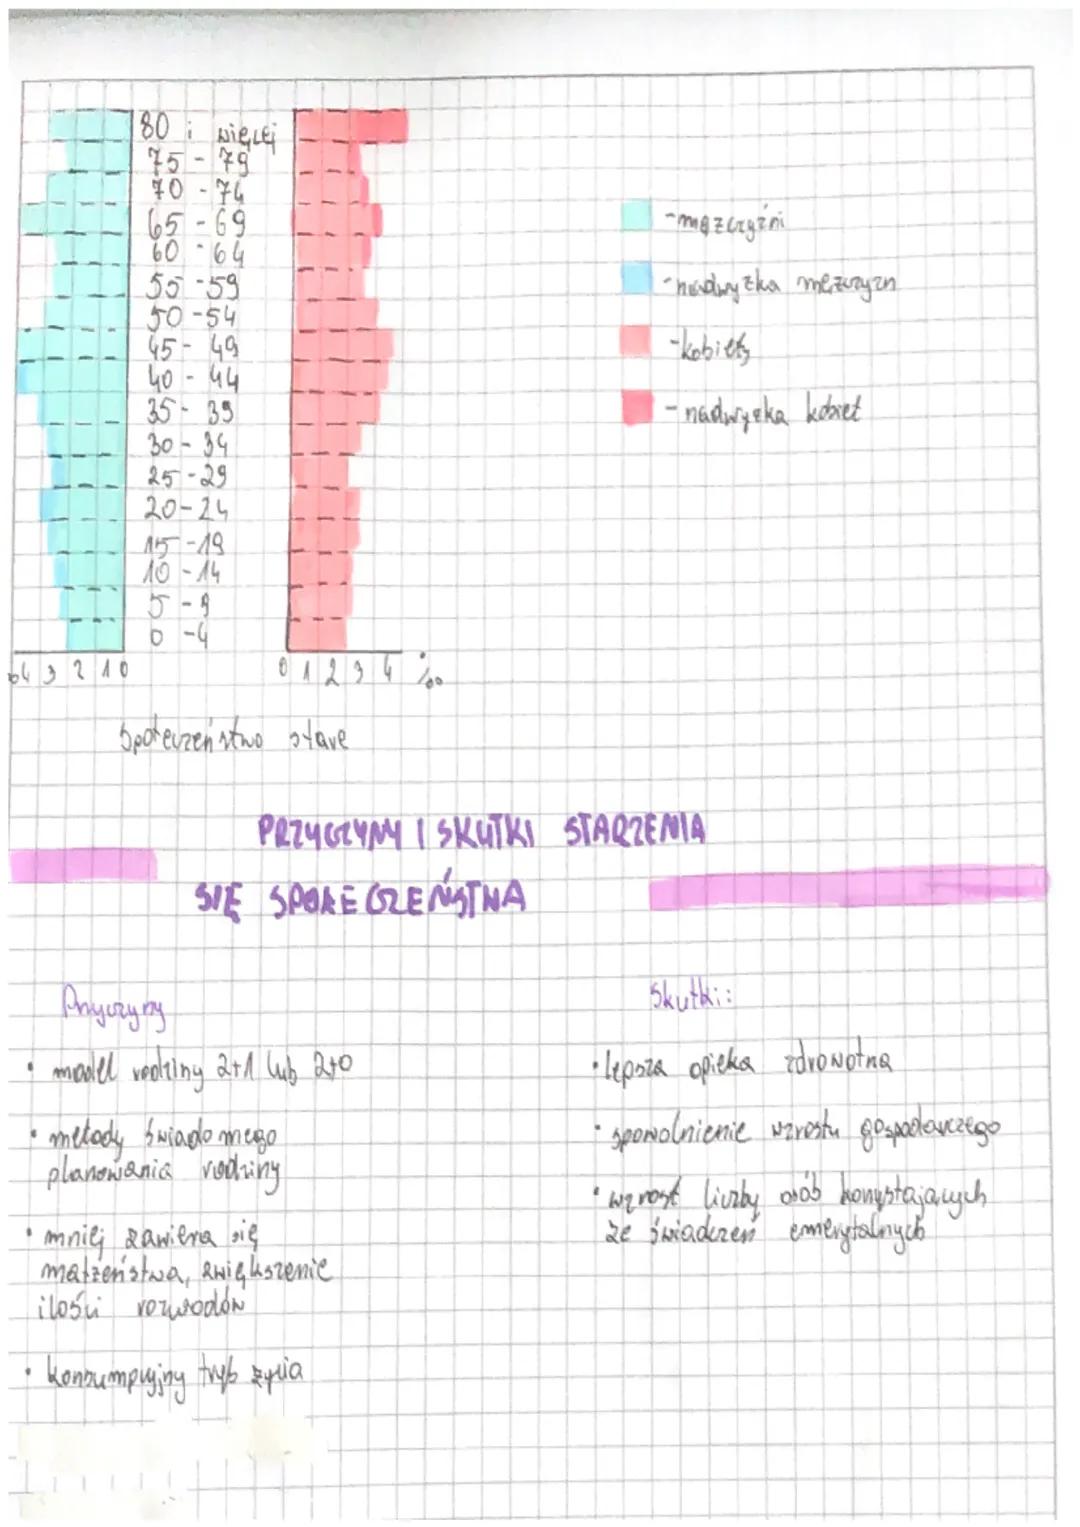 80 i więcej
75 - 79
70 - 74
65 - 69
60 - 64
55 - 59
50 - 54
45 - 49
40 - 44
35 - 39
30 - 34
25 - 29
20 - 24
15 - 19
10 - 14
5 - 9
0 - 4
4 3 2 1 0
0 1 2 3 4 ‰
- mężczyźni
- nadwyżka mężczyzn
- kobiety
- nadwyżka kobiet
Społeczeństwo stare
PRZYCZYNY I SKUTKI STARZENIA
SIĘ SPOŁECZEŃSTWA
Przyczyny
• model rodziny 2+1 lub 2+0
• metody świadomego
planowania rodziny
• mniej zawiera się
małżeństwa, zwiększenie
ilości rozwodów
• konsumpcyjny tryb życia
Skutki:
• lepsza opieka zdrowotna
• spowolnienie wzrostu gospodarczego
• wzrost liczby osób korzystających
ze świadczeń emerytalnych